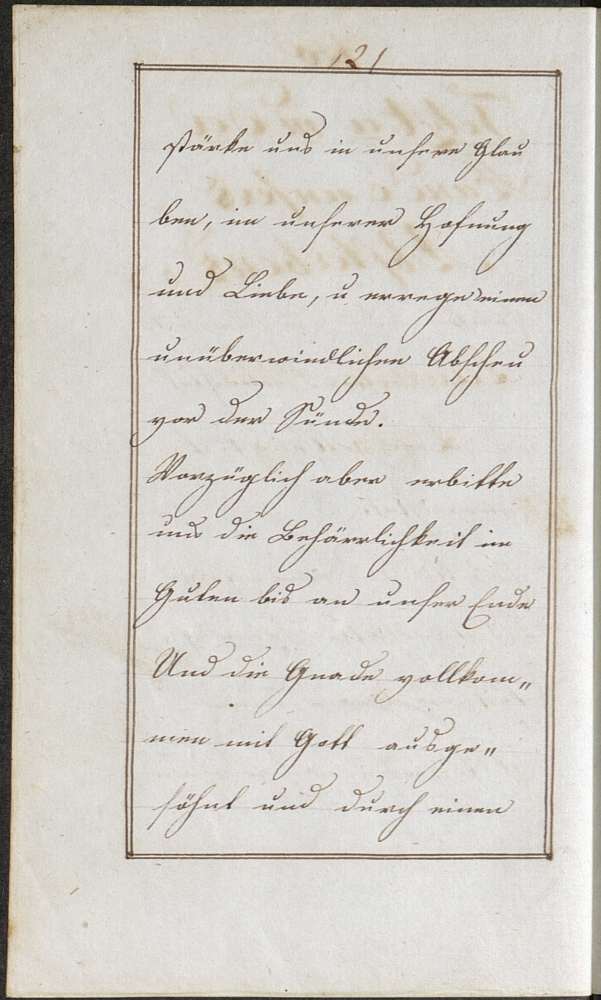 121
stärke uns in unsere Glau
ben, in unserer Hofnung
und Liebe, u. errege einen
unüberwindlichen Abscheu
vor der Sünde.
Vorzüglich aber erbitte
uns die Behärrlichkeit im
Guten bis an unser Ende
Und die Gnade vollkom„
men mit Gott ausge„
söhnt und durch einen